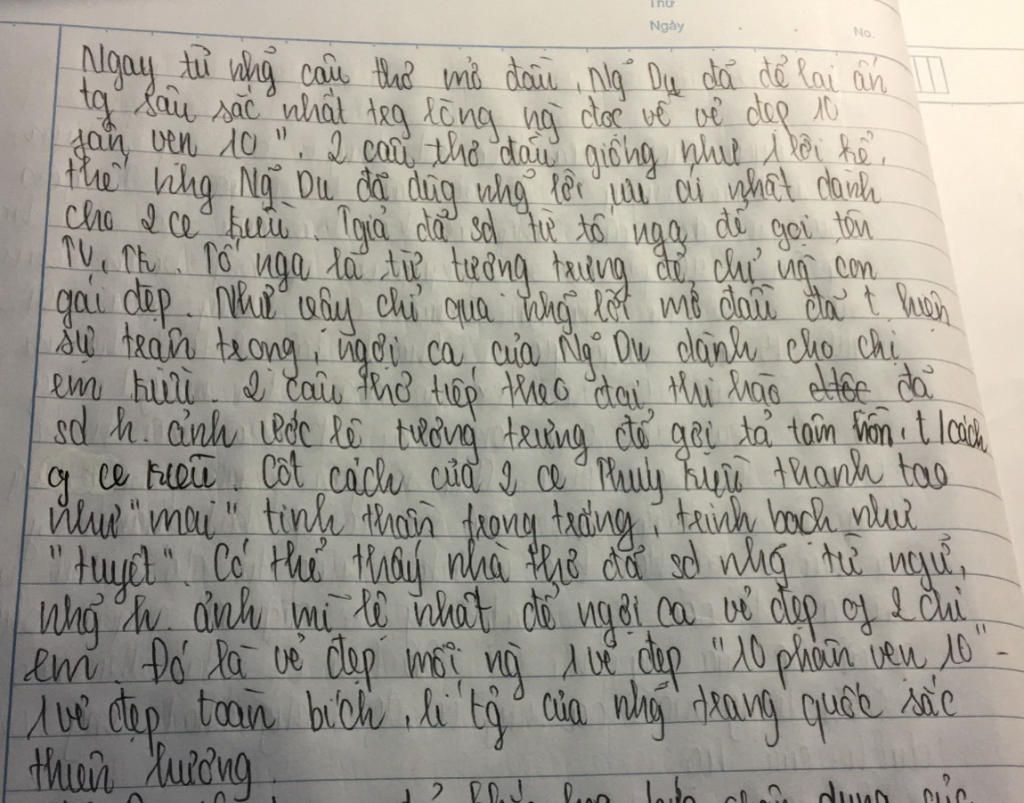 Thứ
Ngày
No.
Ngay từ nhg̃ câu thơ mở đầu, Ng~ Du đã để lại ấn
tg sâu sắc nhất trg lòng ng đọc về vẻ đẹp 10
phân vẹn 10". 2 câu thơ đầu giống như 1 lời kể,
thế nhg Ng~ Du đã dùg nhg~ lời ưu ái nhất dành
cho 2 ce Kiều. Tgiả đã sd từ tố nga để gọi tên
TV, TK. Tố nga là từ tượng trưng để chỉ ng con
gái đẹp. Như vậy chỉ qua nhg~ lời mở đầu đã t. hiện
sự trân trọng, ngợi ca của Ng~ Du dành cho chị
em Kiều. 2 câu thơ tiếp theo đại thi hào đã
sd h. ảnh ước lệ tượng trưng để gợi tả tâm hồn, t/cách
of ce Kiều. Cốt cách của 2 ce Thuý Kiều thanh tao
như "mai" tinh thần trong trắng, trinh bạch như
"tuyết". Có thể thấy nhà thơ đã sd nhg~ từ ngữ,
nhg~ h. ảnh mĩ lệ nhất để ngợi ca vẻ đẹp of 2 chị
em. Đó là vẻ đẹp mỗi ng 1 vẻ đẹp "10 phân vẹn 10" -
1 vẻ đẹp toàn bích, lí tg~ của nhg~ trang quốc sắc
thiên hương.
dung của